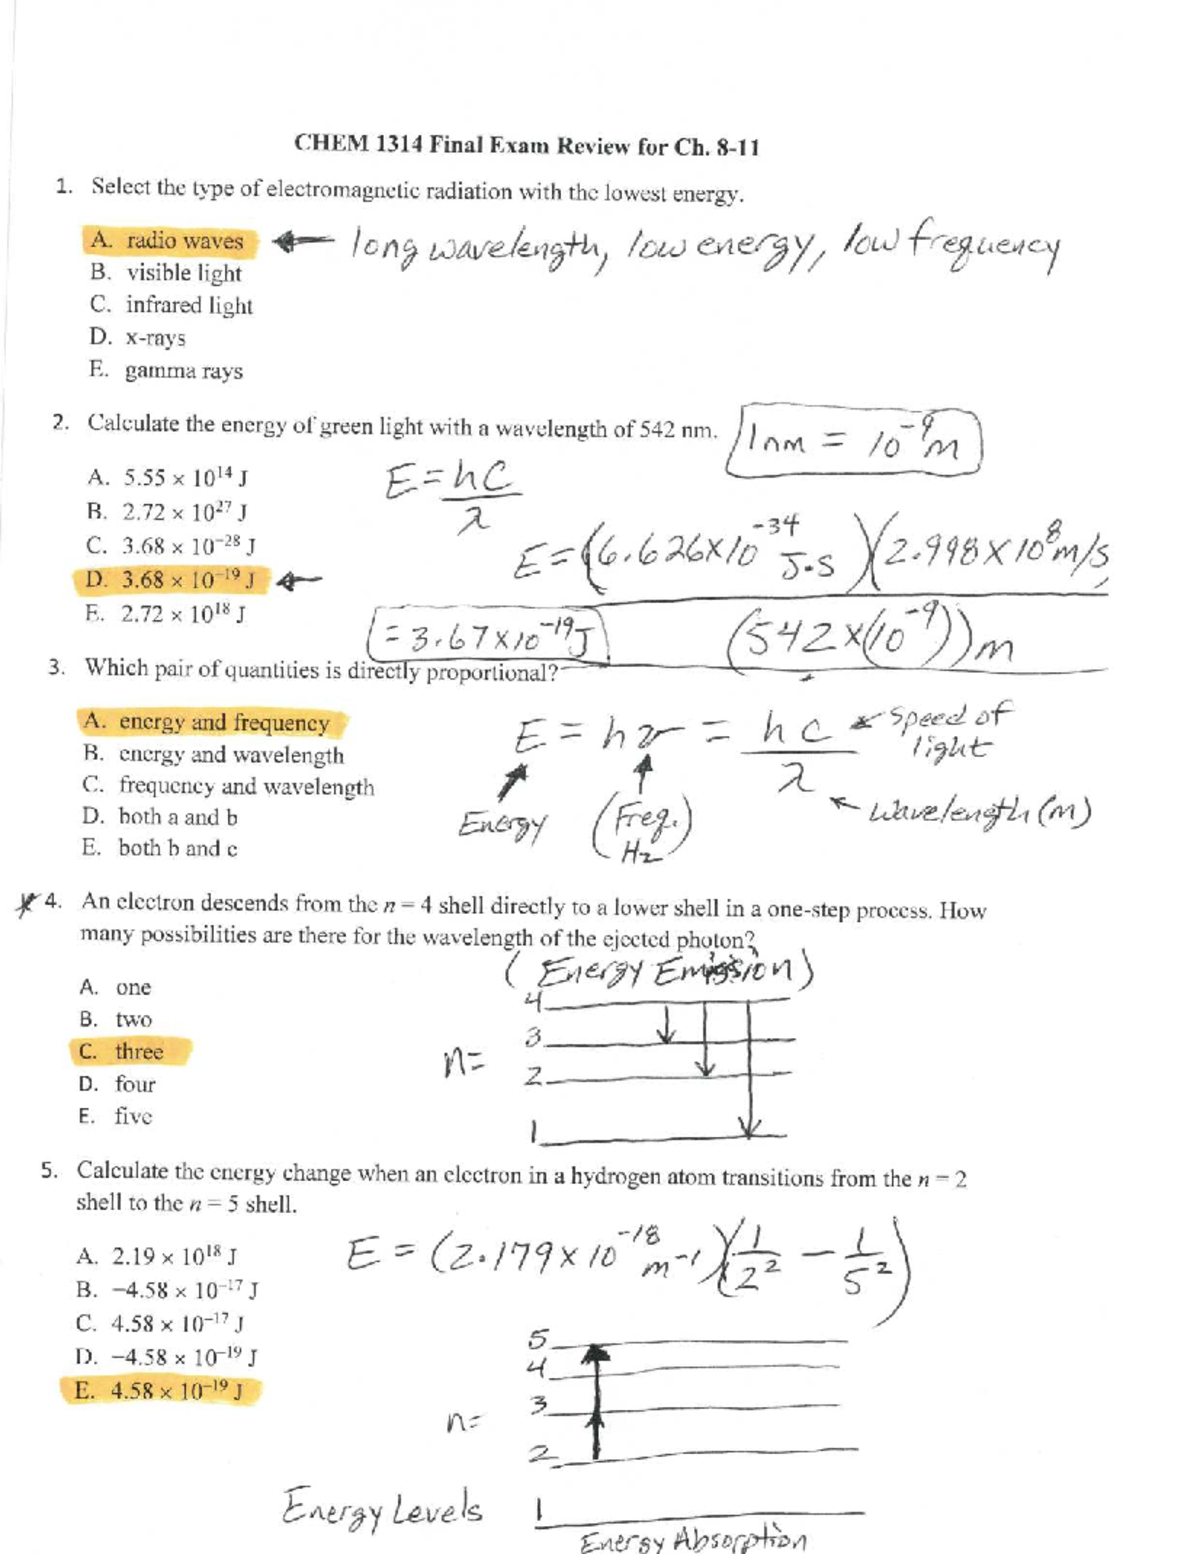 CHEM 1314 Final Exam Review for Ch. 8-11
1. Select the type of electromagnetic radiation with the lowest energy.
A. radio waves ← long wavelength, low energy, low frequency
B. visible light
C. infrared light
D. x-rays
E. gamma rays
2. Calculate the energy of green light with a wavelength of 542 nm. 1nm = 10⁻⁹m
A. 5.55 × 10¹⁴ J
B. 2.72 × 10²⁷ J
C. 3.68 × 10⁻²⁸ J
D. 3.68 × 10⁻¹⁹ J ←
E. 2.72 × 10¹⁸ J
E = hc/λ
E = (6.626×10⁻³⁴ J·s)(2.998×10⁸ m/s)
(542×(10⁻⁹))m
= 3.67×10⁻¹⁹J
3. Which pair of quantities is directly proportional?
A. energy and frequency
B. energy and wavelength
C. frequency and wavelength
D. both a and b
E. both b and c
E = hν = hc/λ
← Speed of
light
← Wavelength (m)
Energy
(Freq.)
Hz
* 4. An electron descends from the n = 4 shell directly to a lower shell in a one-step process. How
many possibilities are there for the wavelength of the ejected photon?
(Energy Emission)
A. one
B. two
C. three
D. four
E. five
4
3
n=
2
1
5. Calculate the energy change when an electron in a hydrogen atom transitions from the n = 2
shell to the n = 5 shell.
A. 2.19 × 10¹⁸ J
B. −4.58 × 10⁻¹⁷ J
C. 4.58 × 10⁻¹⁷ J
D. −4.58 × 10⁻¹⁹ J
E. 4.58 × 10⁻¹⁹ J
E = (2.179×10⁻¹⁸ m⁻¹)(1/2² − 1/5²)
5
4
3
n=
2
Energy Levels 1
Energy Absorption